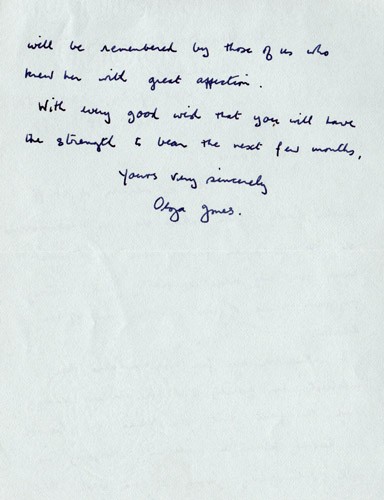 will be remembered by those of us who
knew her with great affection.
With every good wish that you will have
the strength to bear the next few months.
Yours very sincerely
Olga Jones.